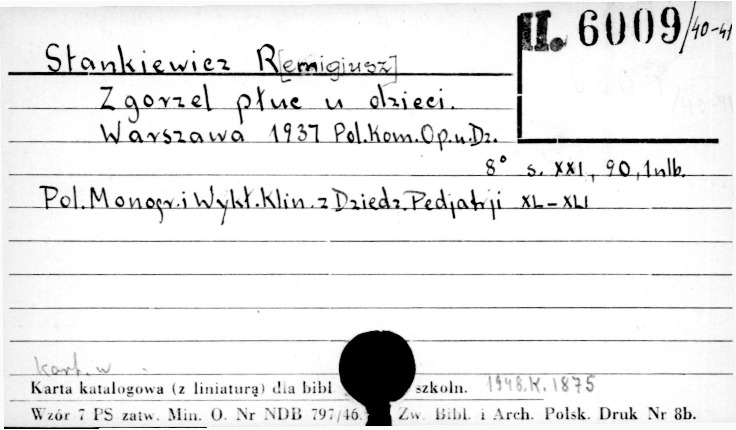 II. 6009/40-41
Stankiewicz R[emigiusz]
Zgorzel płuc u dzieci.
Warszawa 1937 Pol.Kom.Op.n.Dz.
8° s. XXI, 90, 1nlb.
Pol.Monogr.i Wykł.Klin.z Dziedz.Pedjatrji XL-XLI
kart. w
Karta katalogowa (z liniaturą) dla bibl szkoln. 1948.K.1875
Wzór 7 PS zatw. Min. O. Nr NDB 797/46. Zw. Bibl. i Arch. Polsk. Druk Nr 8b.